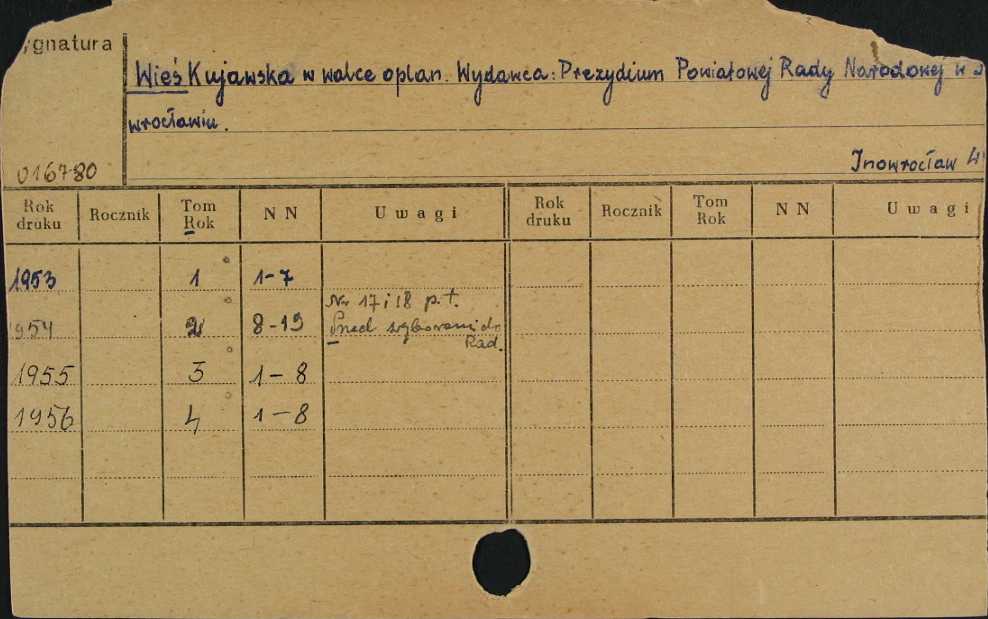 ygnatura
Wieś Kujawska w walce o plan. Wydawca: Prezydium Powiatowej Rady Narodowej w
wrocławiu.
016780
Inowrocław
Rok druku Rocznik Tom Rok N N Uwagi Rok druku Rocznik Tom Rok N N Uwagi
1953 1 1-7
Nr 17 i 18 p.t.
1954 2 8-19 Przed wyborami do
Rad.
1955 3 1-8
1956 4 1-8